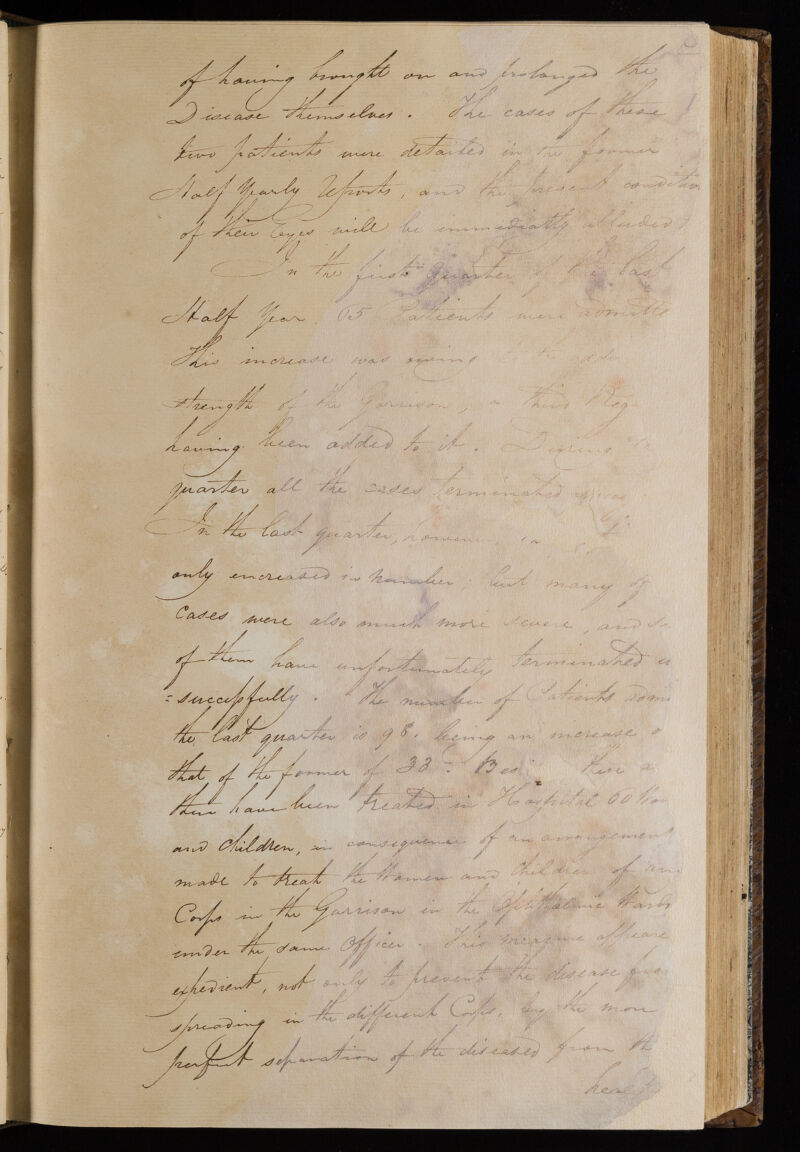 of having brought on and prolonged the
Disease themselves. The cases of these
two patients were detailed in the former
Half Yearly Reports, and the present condition
of their Eyes will be immediately alluded
In the first quarter of the last
Half Year 65 Patients were admitte
This increase was owing to the adde
strength of the Garrison, a third Reg
having been added to it. During
quarter all the cases terminated
In the last quarter, however
only encreased in number; but many of
cases were also much more severe, and so
of them have unfortunately terminated u
=successfully. The number of Patients
the last quarter is 98. being an increase o
that of the former of 33 - Besi these
there have been treated in Hospital 60 Wo
and Children, in consequence of an arrangement
made to treat the Women and Children of
Corps in the Garrison in the Ophthalmic Wards
under the same Officer. This measure appeare
expedient, not only to prevent the disease from
spreading in the different Corps, by the more
perfect separation of the diseased from the
heal